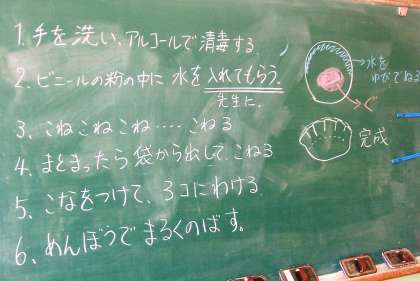 1. 手を洗い、アルコールで消毒する。
2. ビニールの粉の中に水を入れてもらう。
先生に。
3、こねこねこね‥‥こねる
4、まとまったら袋から出して、こねる
5、こなをつけて、3コにわける
6、めんぼうでまるくのばす。
→水を
ゆびでねる
完成